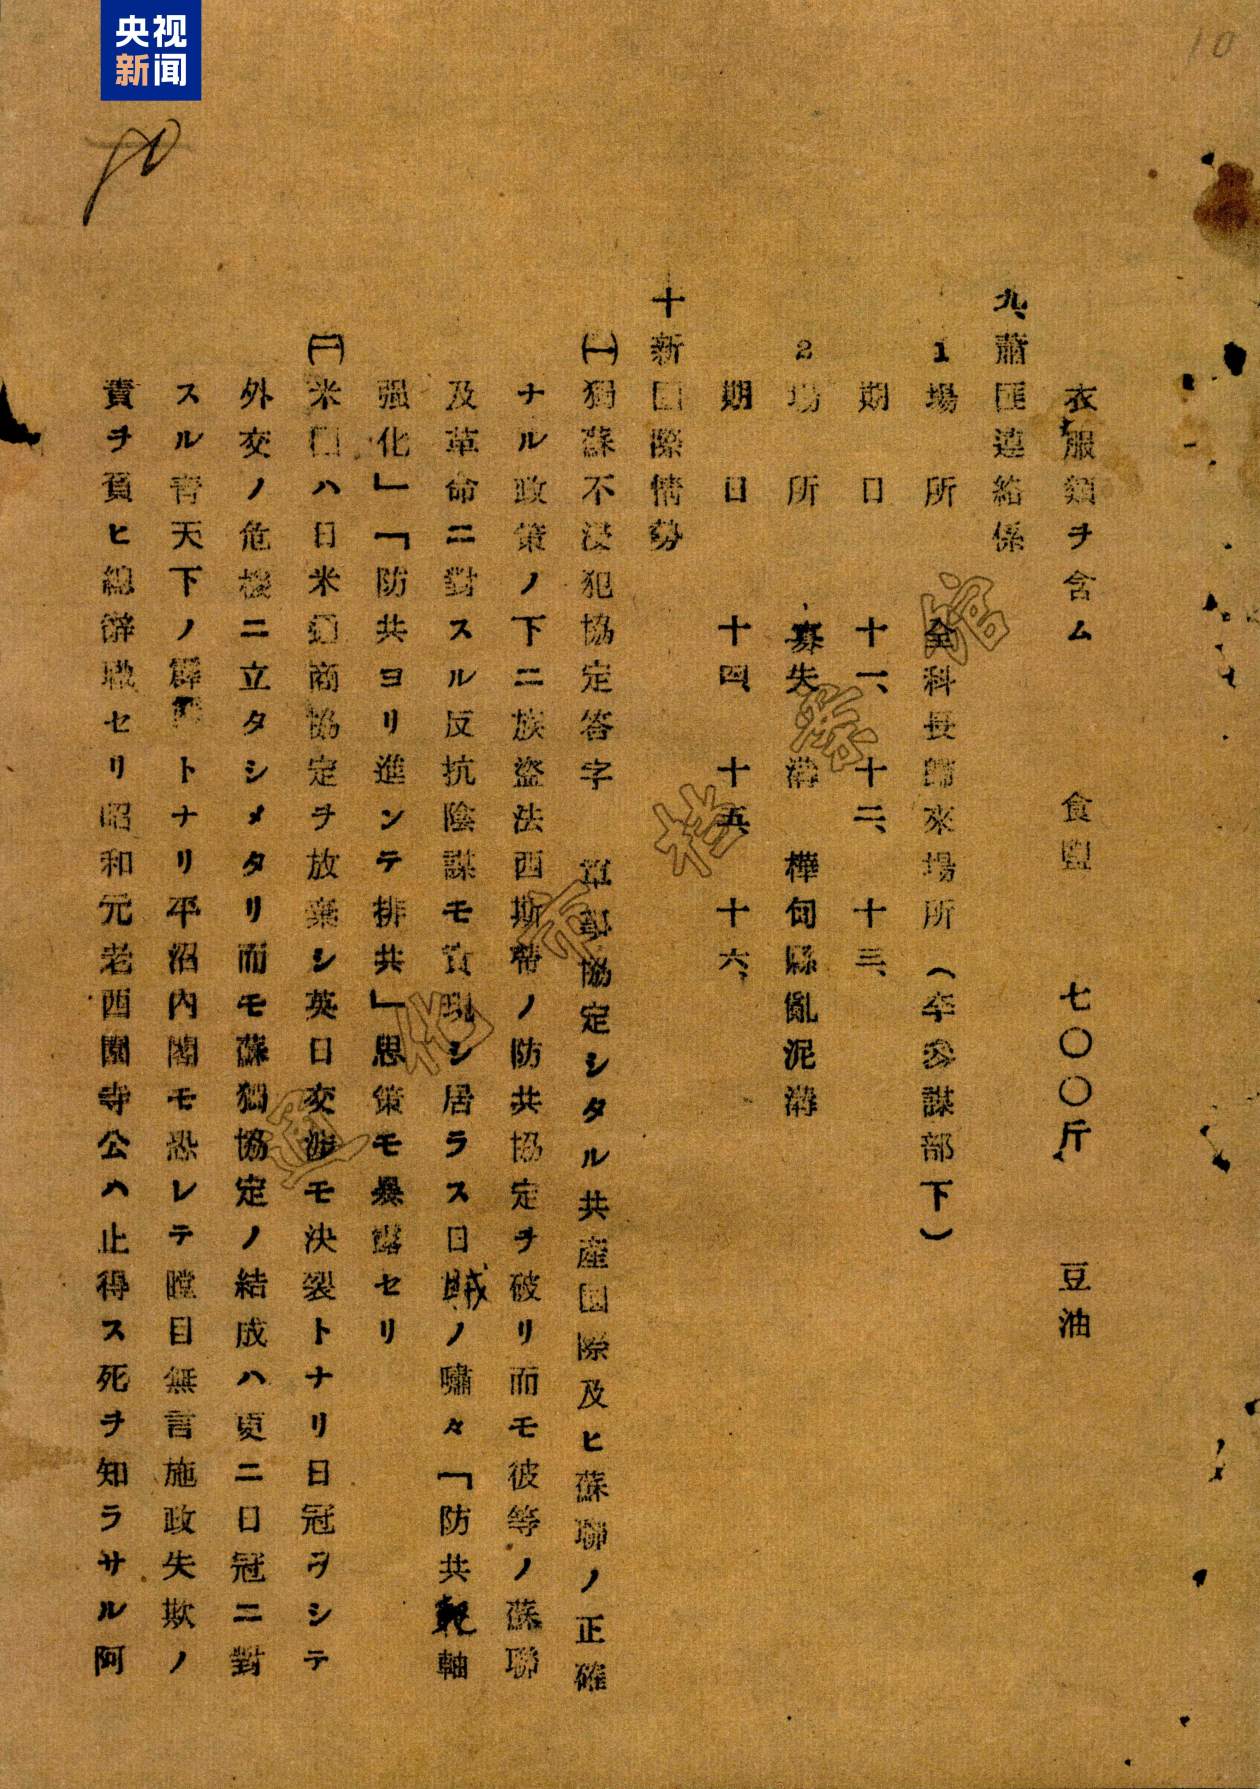 央视
新闻
10
衣服類ヲ含ム 食鹽 七〇〇斤 豆油
九、蕭匪連絡係
1 場所 全科長歸來場所（李參謀部下）
期日 十一、十二、十三、
2 場所 寡失溝 樺甸縣亂泥溝
期日 十四、十五、十六、
十新国際情勢
㈠獨蘇不浸犯協定答字 軍事協定シタル共産国際及ヒ蘇聯ノ正確
ナル政策ノ下ニ族盗法西斯帶ノ防共協定ヲ破リ而モ彼等ノ蘇聯
及革命ニ對スル反抗陰謀モ實現シ居ラス日賊ノ嘯々「防共軸
强化」「防共ヨリ進ンテ排共」思策モ暴露セリ
㈡米国ハ日米通商協定ヲ放棄シ英日交渉モ決裂トナリ日冠ヲシテ
外交ノ危機ニ立タシメタリ而モ蘇獨協定ノ結成ハ更ニ日冠ニ對
スル青天下ノ霹靂トナリ平沼内閣モ恐レテ瞠目無言施政失欺ノ
責ヲ負ヒ總辭職セリ昭和元老西園寺公ハ止得ス死ヲ知ラサル阿
通化市档案馆